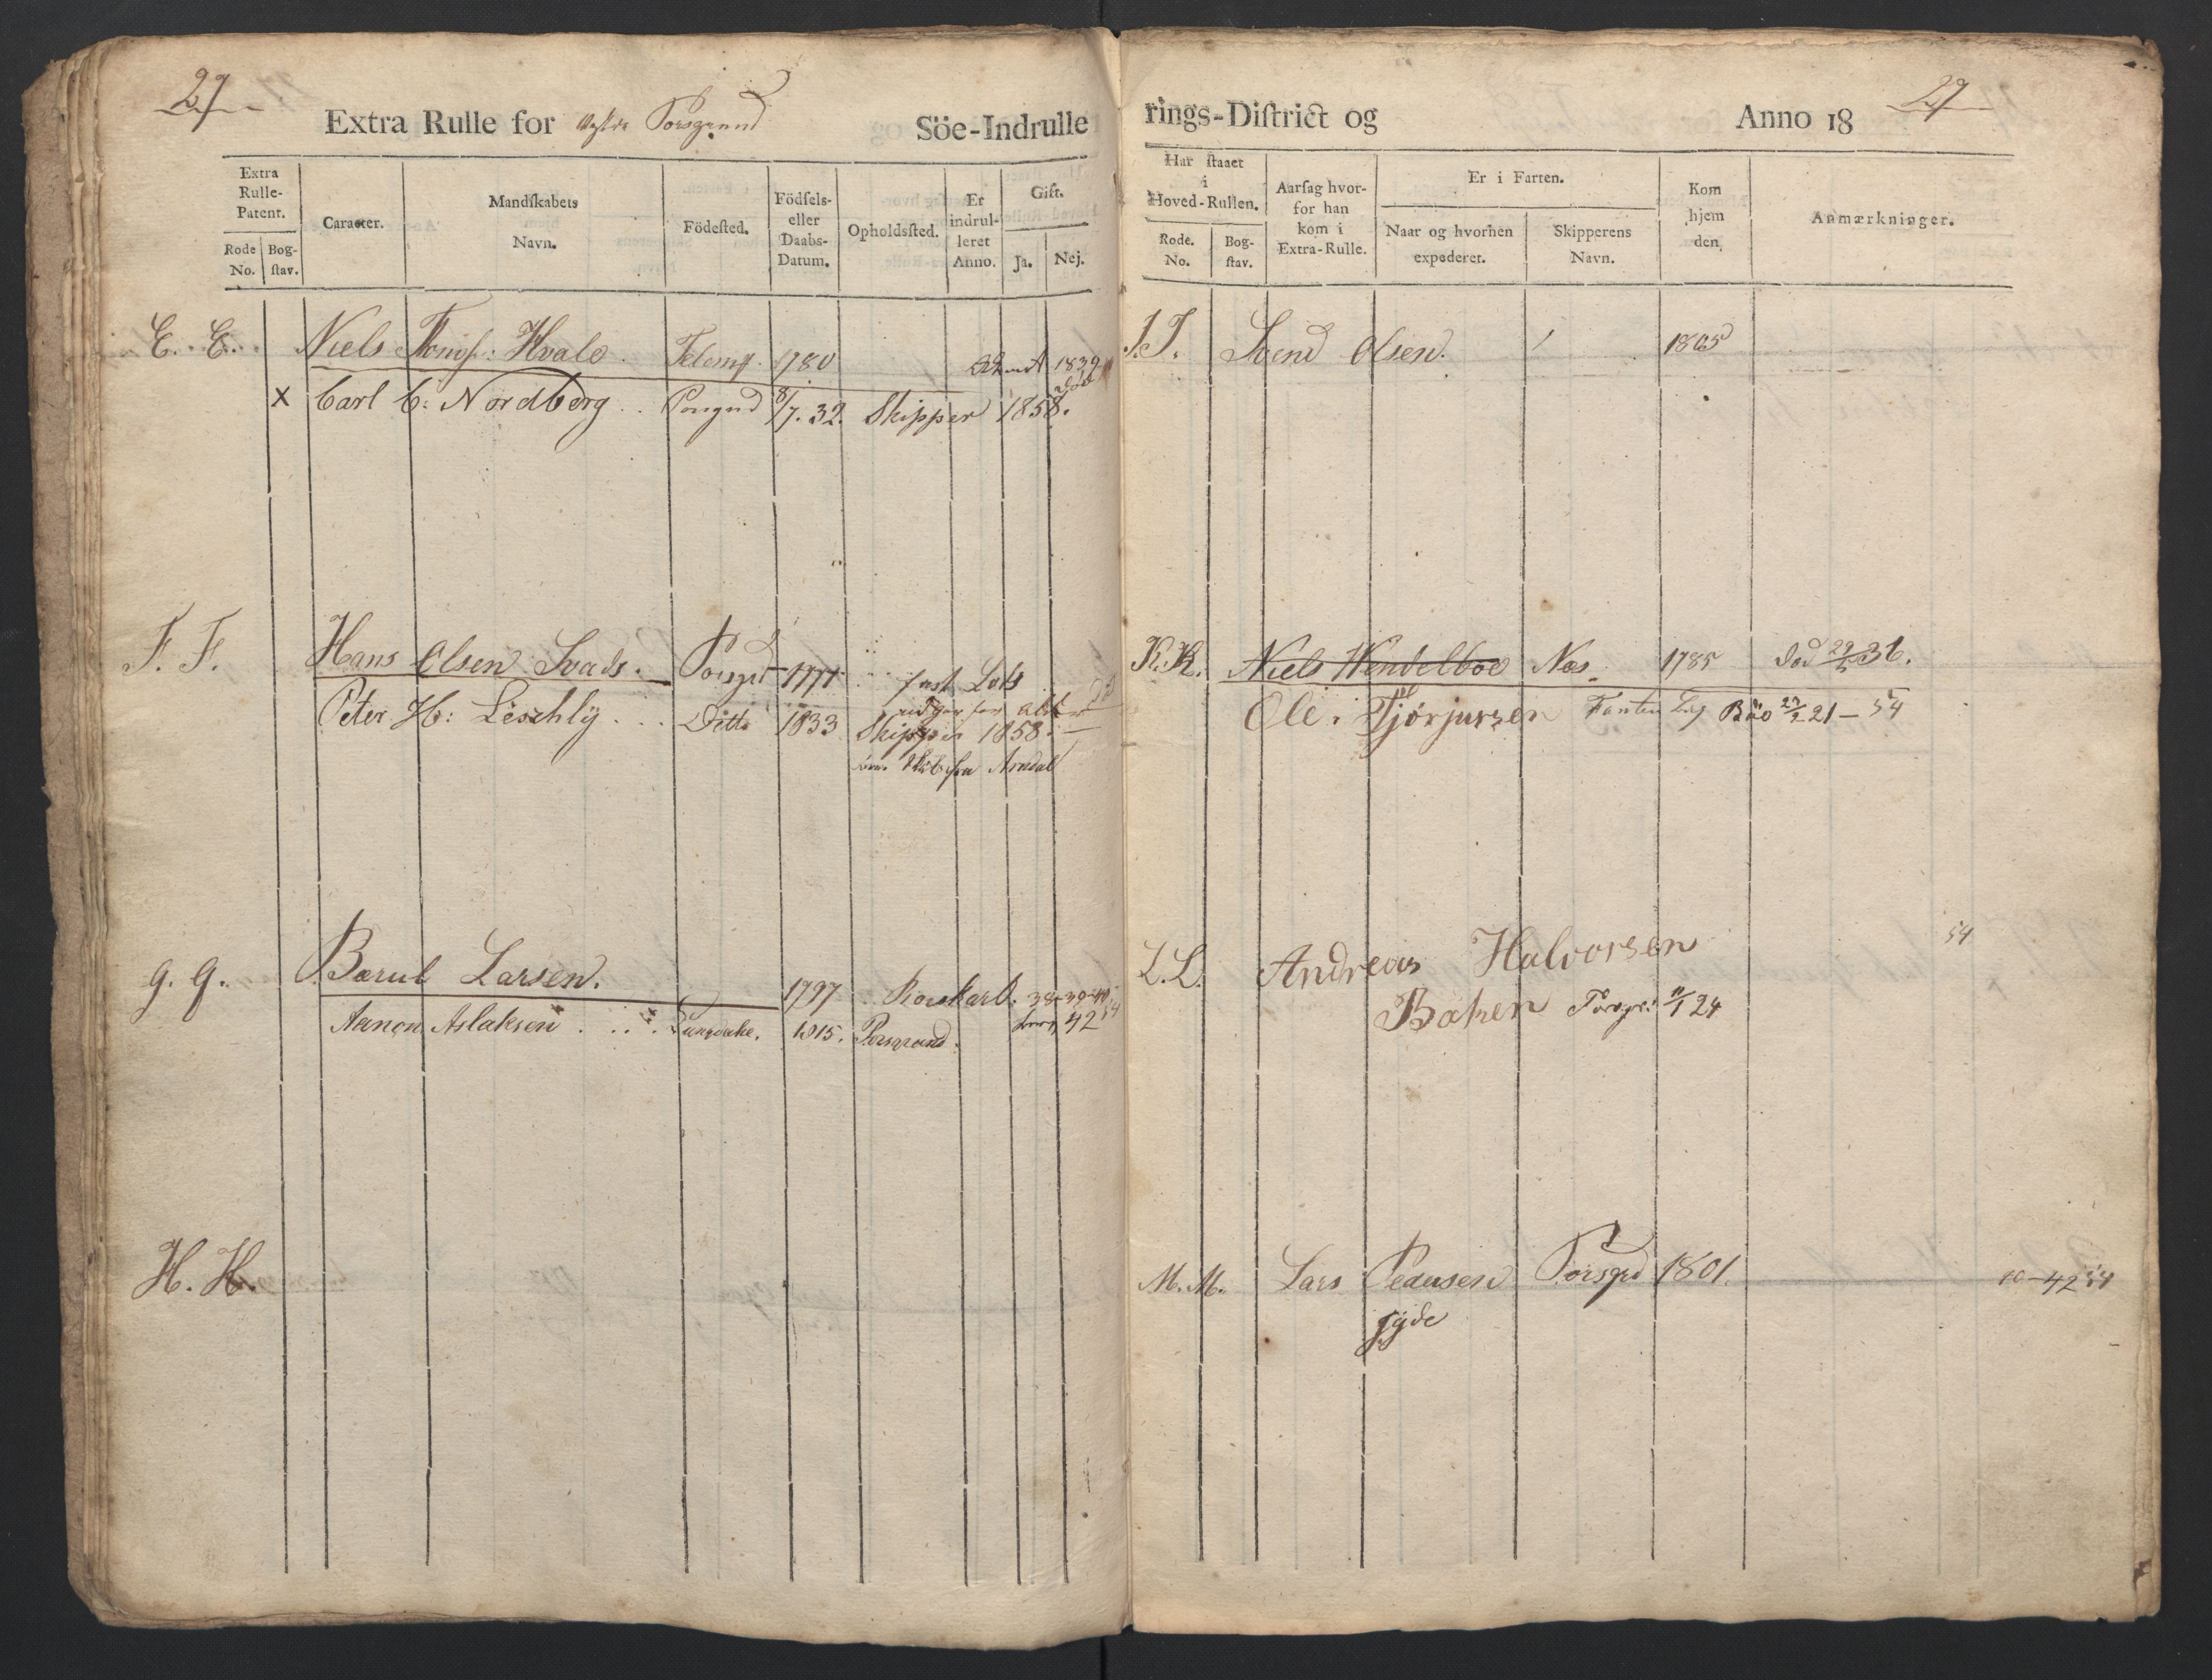 27
Extra Rulle for Porsgrund Söe-Indrulle
Extra Rulle-Patent.
Rode No.
Bog-stav.
Caracter.
Mandſkabets Navn.
Födeſted.
Födſels- eller Daabs-Datum.
Opholdsſted.
Er indrulleret Anno.
Gift.
Ja.
Nej.
E. E. Niels Hvale. Telem 1780 1839
x Carl C: Nordberg .. Porsgrud 8/7. 32. Skipper 1858.
F. F. Hans Olsen Svads. Porsgrd 1771 fast Lods
Peter H: Leschly ... Ditto 1833 Skipper 1858.
fra Arendal
G. G. Barul Larsen. 1797 .. 38-39-40
Aanon Aslaksen .... 1815. Porsgrund. 42 54
H. H.
rings-Diſtrict og Anno 18 27
Har ſtaaet i Hoved-Rullen.
Rode. No.
Bog-ſtav.
Aarſag hvor-for han kom i Extra-Rulle.
Er i Farten.
Naar og hvorhen expederet.
Skipperens Navn.
Kom hjem den.
Anmærkninger.
I. I. Svend Olsen. 1805
K. K. Niels Wendelboe Næs. 1785 død 29/5 36.
Ole Tjörjursen 21 - 54
54
L. L. Andreas Halvorsen
Baken Porsgr: 11/1 24
M. M. Lars Pedersen Porsgrd 1801. 40-42 54
Jyde